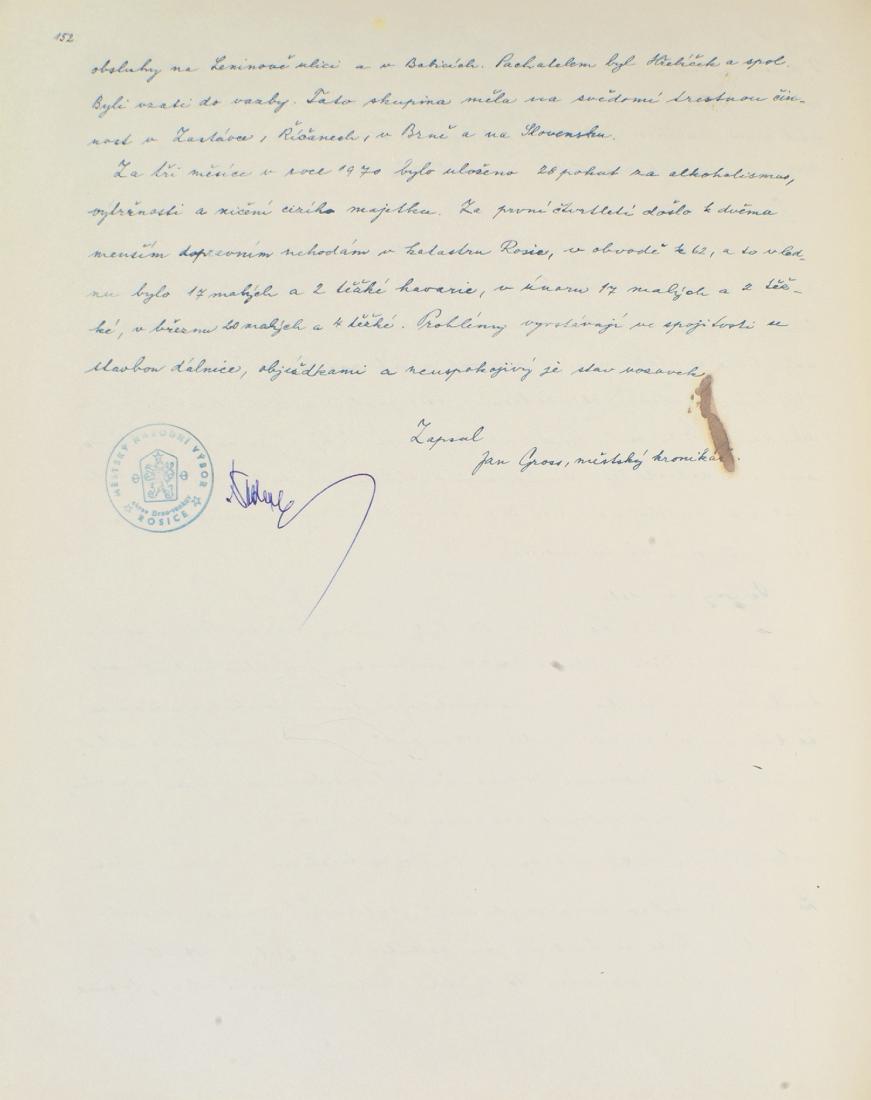 152
obsluhy na Leninově ulici a v Babicích. Pachatelem byl Hřebíček a spol.
Byli vzati do vazby. Tato skupina měla na svědomí trestnou čin-
nost v Zastávce, Říčanech, v Brně a na Slovensku.
Za tři měsíce v roce 1970 bylo uloženo 28 pokut za alkoholismus,
výtržnosti a ničení cizího majetku. Za první čtvrtletí došlo k dvěma
menším dopravním nehodám v katastru Rosic, v obvodě k 62, a to v led-
nu bylo 17 malých a 2 těžké havarie, v únoru 17 malých a 2 těž-
ké, v březnu 20 malých a 4 těžké. Problémy vyvstávají ve spojitosti se
stavbou dálnice, objížďkami a neuspokojivý je stav vozovek.
Zapsal
Jan Gross, městský kronikář.
MĚSTSKÝ NÁRODNÍ VÝBOR
okres Brno-venkov
ROSICE